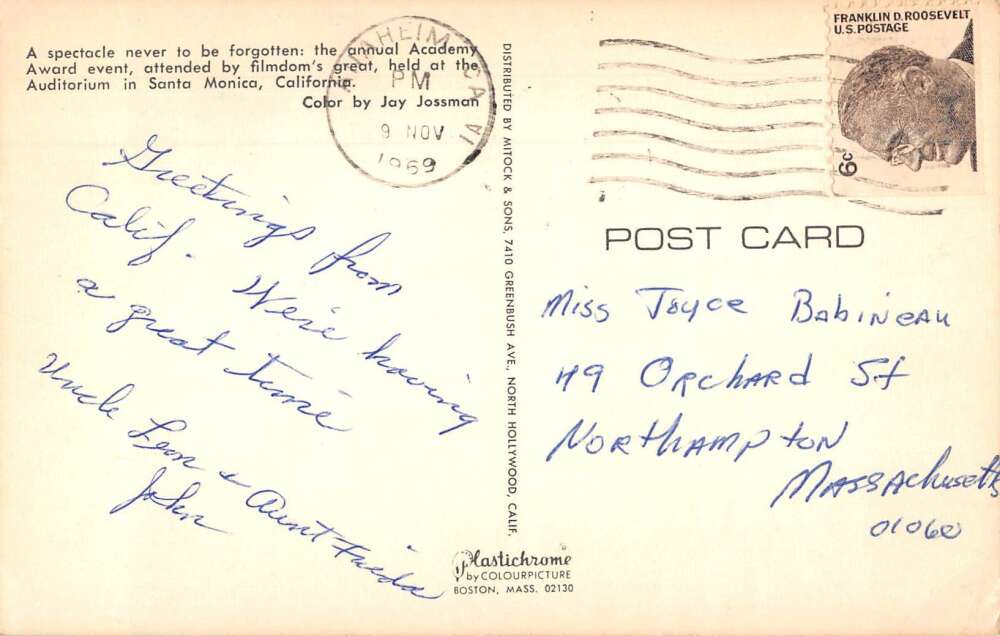 A spectacle never to be forgotten: the annual Academy
Award event, attended by filmdom's great, held at the
Auditorium in Santa Monica, California.
Color by Jay Jossman
ANAHEIM CA
PM
9 NOV
1969
FRANKLIN D. ROOSEVELT
U.S. POSTAGE
6c
Greetings from
Calif. We're having
a great time
Uncle Leon & Aunt Frieda
John
DISTRIBUTED BY MITOCK & SONS, 7410 GREENBUSH AVE., NORTH HOLLYWOOD, CALIF.
POST CARD
Miss Joyce Babineau
49 Orchard St
Northampton
Massachusetts
01060
Plastichrome
by COLOURPICTURE
BOSTON, MASS. 02130